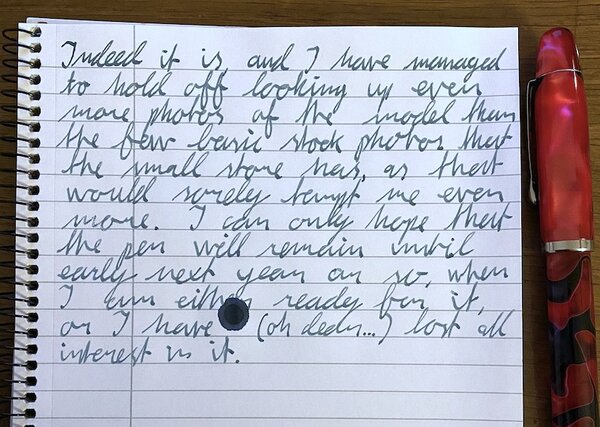 Indeed it is, and I have managed
to hold off looking up even
more photos of the model than
the few basic stock photos that
the small store has, as that
would sorely tempt me even
more. I can only hope that
the pen will remain until
early next year or so, when
I am either ready for it,
or I have (oh dear...) lost all
interest in it.